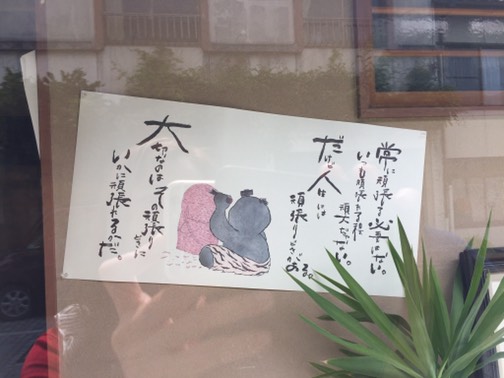 常に頑張る必要はない。
いつも頑張れる程
頑丈じゃない。
だけど人には
頑張りどきがある。
大切なのはその頑張りどきに
いかに頑張れるかだ。